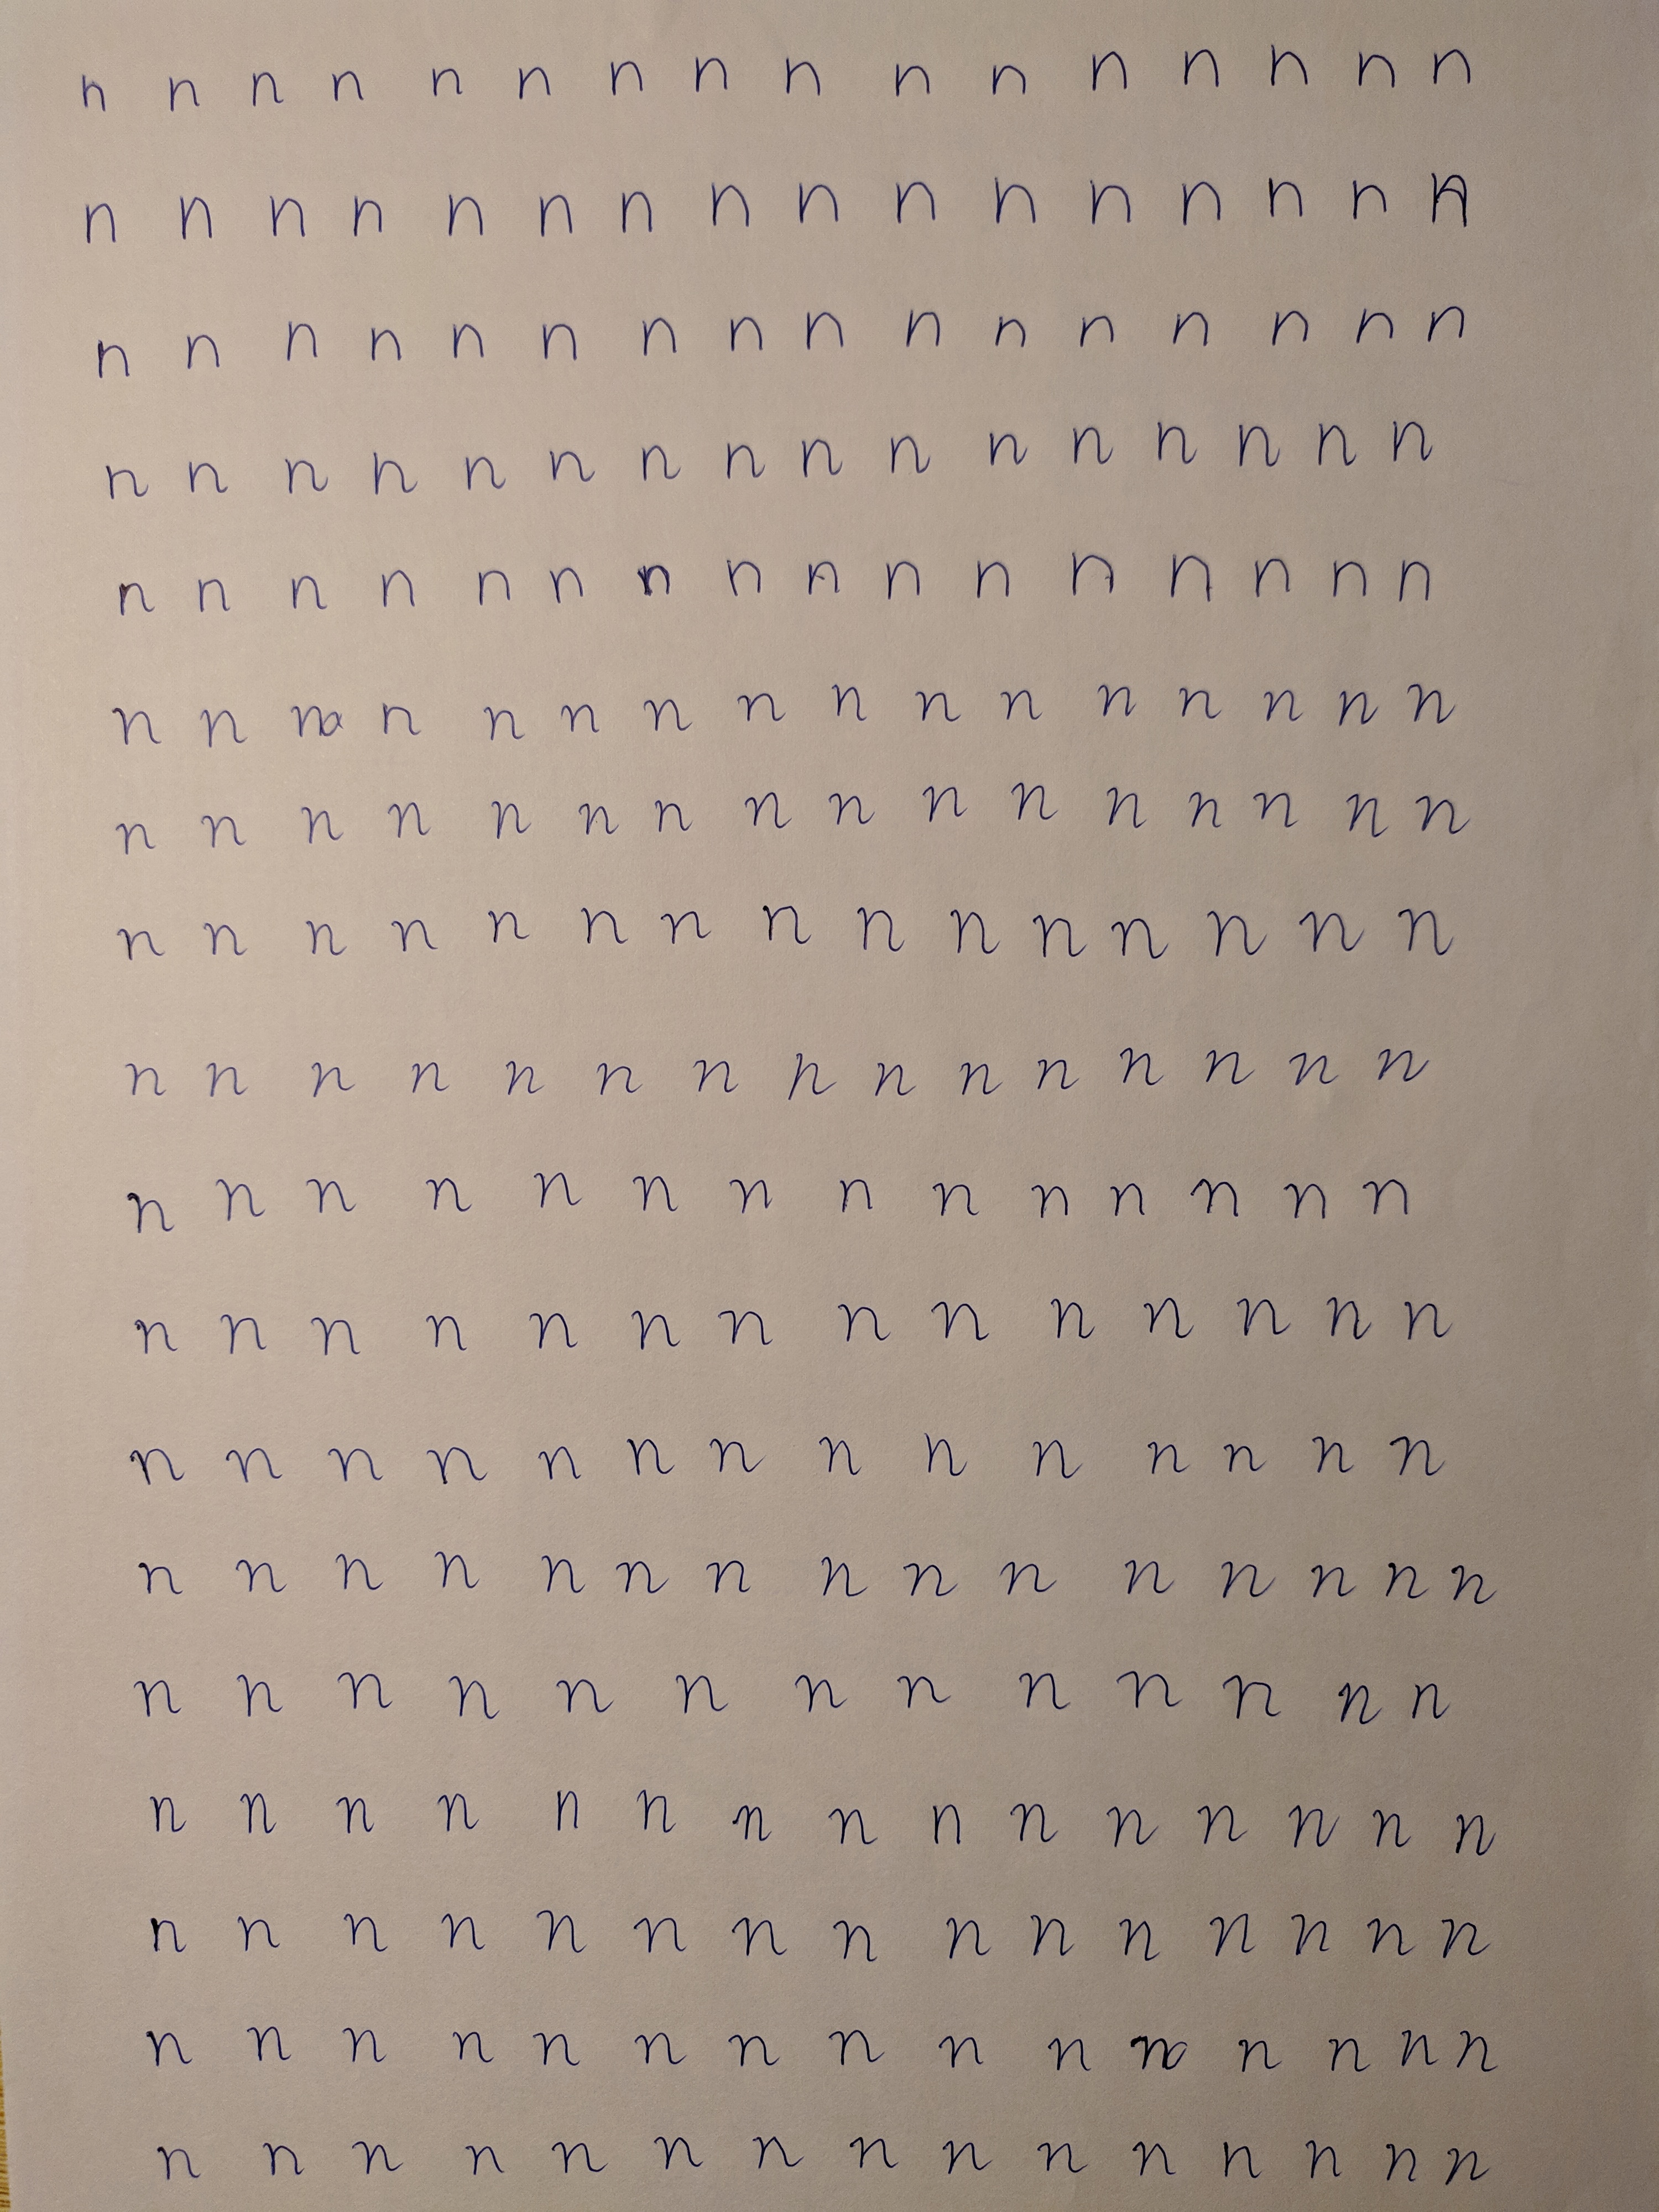 n n n n n n n n n n n n n n n n
n n n n n n n n n n n n n n n n
n n n n n n n n n n n n n n n n
n n n n n n n n n n n n n n n n
n n n n n n n n n n n n n n n n
n n n n n n n n n n n n n n n n
n n n n n n n n n n n n n n n n
n n n n n n n n n n n n n n n
n n n n n n n n n n n n n n n
n n n n n n n n n n n n n n
n n n n n n n n n n n n n n
n n n n n n n n n n n n n n
n n n n n n n n n n n n n n n
n n n n n n n n n n n n n
n n n n n n n n n n n n n n n
n n n n n n n n n n n n n n n
n n n n n n n n n n n n n n n
n n n n n n n n n n n n n n n